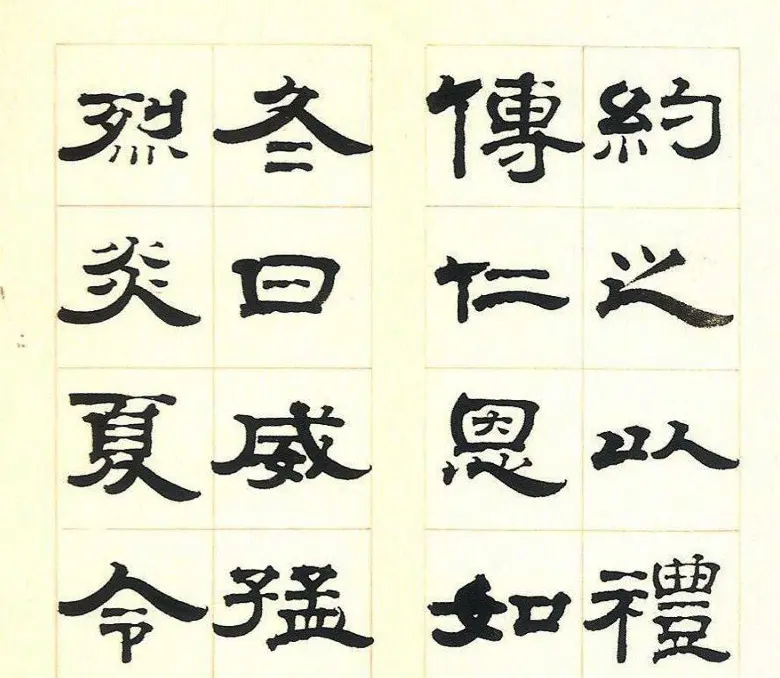 約之以禮
傳仁恩如
冬日威猛
烈炎夏令